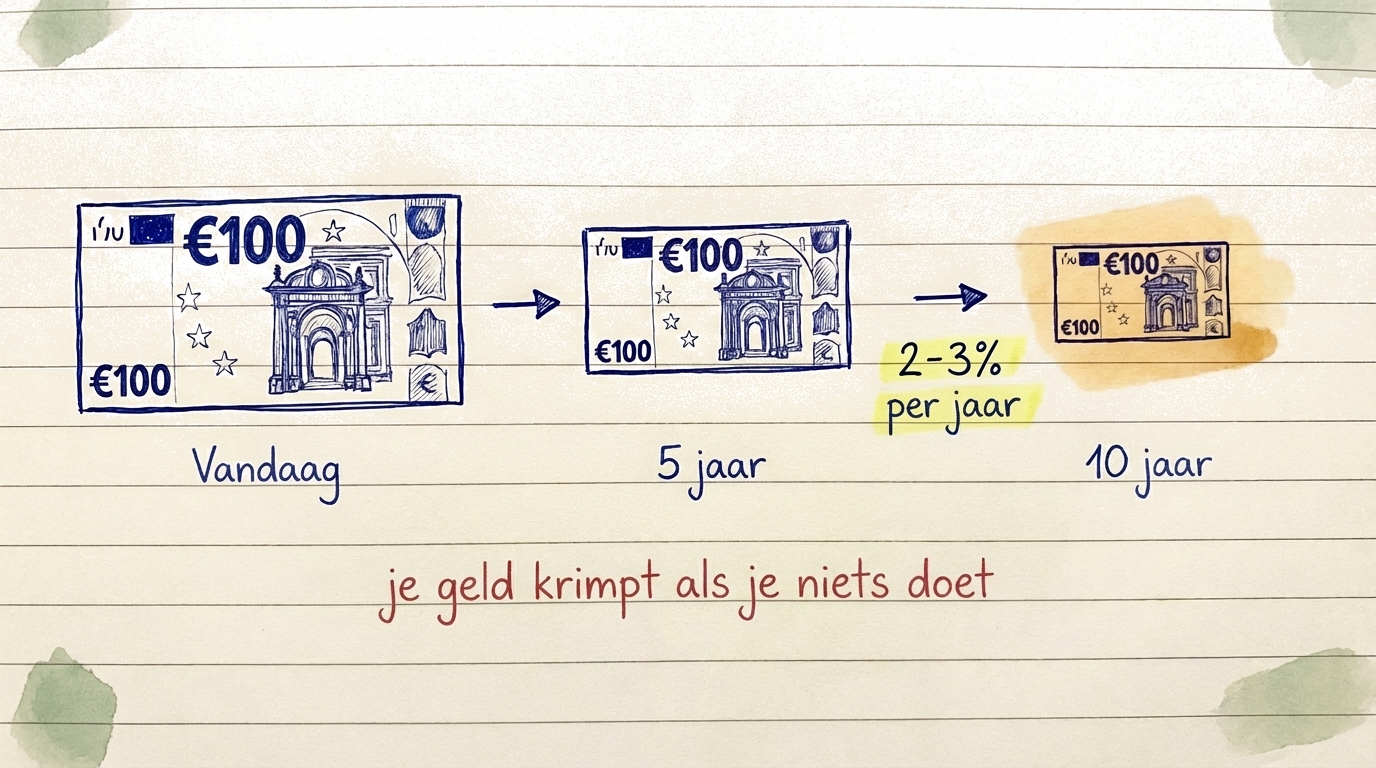 €100
€100
€
Vandaag
€100
€100
5 jaar
2-3%
per jaar
€100
€100
€
10 jaar
je geld krimpt als je niets doet